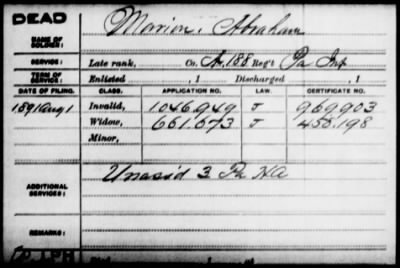 DEAD
NAME OF SOLDIER: Morrion, Abraham
SERVICE: Late rank, Co. A, 188 Reg't Pa Inf
TERM OF SERVICE: Enlisted , 1 Discharged , 1
DATE OF FILING. CLASS. APPLICATION NO. LAW. CERTIFICATE NO.
1891 Aug 1 Invalid, 1046.949 J 969.903
Widow, 661.673 J 458.198
Minor,
ADDITIONAL SERVICES: Unas'd 3 Pa HA
REMARKS: